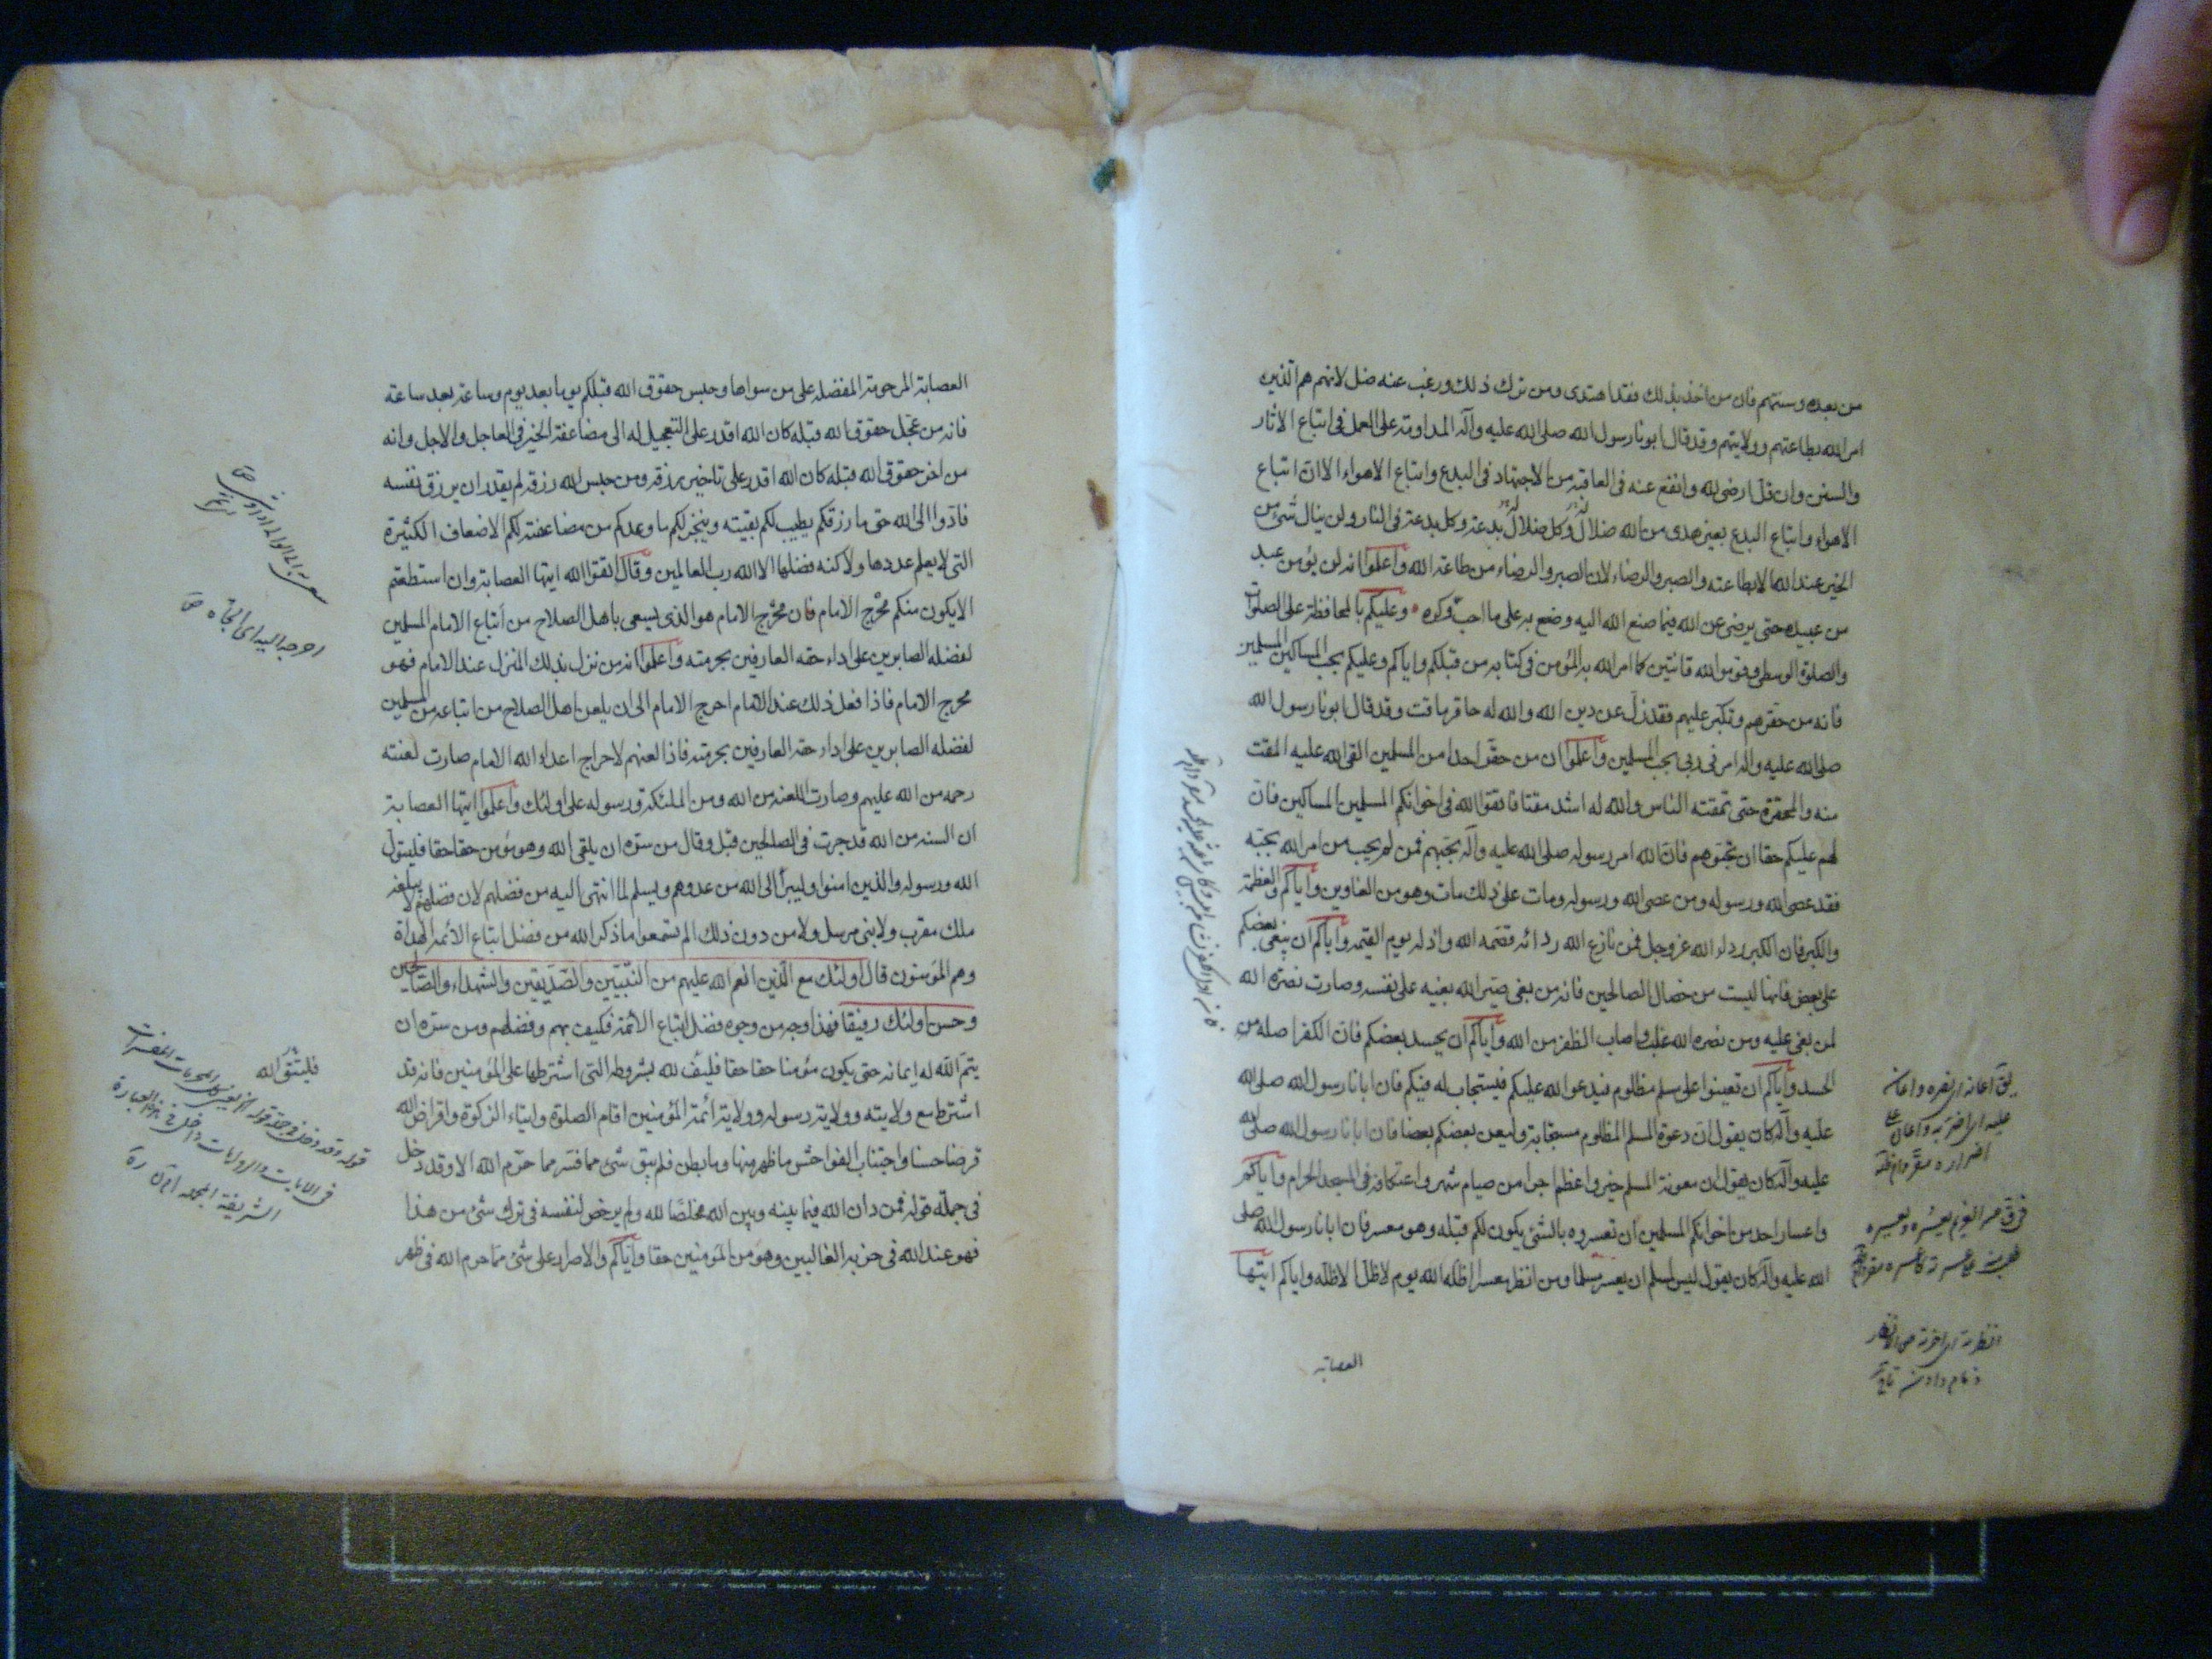 من بعده وسنتهم فان من اخذ بذلك فقد اهتدى ومن ترك ذلك ورغب عنه ضل لانهم هم الذين
امر الله بطاعتهم وولايتهم وقد قال ابونا رسول الله صلى الله عليه وآله المداومة على العمل فى اتباع الاثار
والسنن وان قل ارضى لله وانفع عنه فى العاقبة من الاجتهاد فى البدع واتباع الاهواء الا ان اتباع
الاهواء واتباع البدع بغير هدى من الله ضلال وكل ضلال بدعة وكل بدعة فى النار ولن ينال شئ من
الخير عند الله الا بطاعته والصبر والرضاء لان الصبر والرضاء من طاعة الله واعلموا انه لن يؤمن عبد
من عبيده حتى يرضى عن الله فيما صنع الله اليه وصنع به على ما احب وكره وعليكم بالمحافظة على الصلوات
والصلوة الوسطى وقوموا لله قانتين كما امر الله به المؤمن فى كتابه من قبلكم واياكم وعليكم بحب المساكين المسلمين
فانه من حقرهم وتكبر عليهم فقد زل عن دين الله والله له حاقر ماقت وقد قال ابونا رسول الله
صلى الله عليه واله امرنى ربى بحب المسلمين واعلموا ان من حقر احدا من المسلمين القى الله عليه المقت
منه والمحقرة حتى تمقته الناس والله له اشد مقتا فاتقوا الله فى اخوانكم المسلمين المساكين فان
لهم عليكم حقا ان تحبوهم فان الله امر رسوله صلى الله عليه وآله بحبهم فمن لم يحب من امر الله بحبه
فقد عصى الله ورسوله ومن عصى الله ورسوله ومات على ذلك مات وهو من الغاوين واياكم والعظمة
والكبر فان الكبر رداء الله عز وجل فمن نازع الله ردائه قصمه الله واذله يوم القيمة واياكم ان يبغى بعضكم
على بعض فانها ليست من خصال الصالحين فانه من بغى صير الله بغيه على نفسه وصارت نصرة الله
لمن بغى عليه ومن نصره الله غلب واصاب الظفر من الله واياكم ان يحسد بعضكم فان الكفر اصله من
الحسد واياكم ان تعينوا على مسلم مظلوم فيدعو الله عليكم فيستجاب له فيكم فان ابانا رسول الله صلى الله
عليه وآله كان يقول ان دعوة المسلم المظلوم مستجابة وليعن بعضكم بعضا فان ابانا رسول الله صلى الله
عليه وآله كان يقول ان معونة المسلم خير واعظم اجرا من صيام شهر واعتكافه فى المسجد الحرام واياكم
واعسار احد من اخوانكم المسلمين ان تعسروه بالشئ يكون لكم قبله وهو معسر فان ابانا رسول الله صلى
الله عليه وآله كان يقول ليس لمسلم ان يعسر مسلما ومن انظر معسرا اظله الله يوم لا ظل الا ظله واياكم ايتها
العصابة
العصابة المرحومة المفضله على من سواها وحبس حقوق الله قبلكم يوما بعد يوم وساعة بعد ساعة
فانه من عجل حقوق الله قبله كان الله اقدر على التعجيل له الى مضاعفة الخير فى العاجل والاجل وانه
من اخر حقوق الله قبله كان الله اقدر على تاخير رزقه ومن حبس الله رزقه لم يقدر ان يرزق نفسه
فادوا الى الله حق ما رزقكم يطيب لكم بقيته وينجز لكم ما وعدكم من مضاعفته لكم الاضعاف الكثيرة
التى لا يعلم عددها ولا كنه فضلها الا الله رب العالمين وقال اتقوا الله ايتها العصابة وان استطعتم
الا يكون منكم محرج الامام فان محرج الامام هو الذى يسعى باهل الصلاح من اتباع الامام المسلمين
لفضله الصابرين على اداء حقه العارفين بحرمته واعلموا انه من نزل بذلك المنزل عند الامام فهو
محرج الامام فاذا فعل ذلك عند الامام احرج الامام الى ان يلعن اهل الصلاح من اتباعه من المسلمين
لفضله الصابرين على اداء حقه العارفين بحرمته فاذا لعنهم لاحراج اعداء الله الامام صارت لعنته
رحمه من الله عليهم وصارت اللعنة من الله ومن الملئكة ورسوله على اولئك واعلموا ايتها العصابة
ان السنة من الله قد جرت فى الصالحين قبل وقال من سره ان يلقى الله وهو مؤمن حقا حقا فليتول
الله ورسوله والذين امنوا وليبرأ الى الله من عدوهم ويسلم لما انتهى اليه من فضلهم لان فضلهم لا يبلغه
ملك مقرب ولا نبى مرسل ولا من دون ذلك الم تسمعوا ما ذكر الله من فضل اتباع الائمة الهداة
وهم المؤمنون قال اولئك مع الذين انعم الله عليهم من النبيين والصديقين والشهداء والصالحين
وحسن اولئك رفيقا فهذا وجه من وجوه فضل اتباع الائمة فكيف بهم وفضلهم ومن سره ان
يتم الله له ايمانه حتى يكون مؤمنا حقا حقا فليف لله بشروطه التى اشترطها على المؤمنين فانه قد
اشترط مع ولايته وولاية رسوله وولاية ائمة المؤمنين اقام الصلوة وايتاء الزكوة واقراض الله
قرضا حسنا واجتناب الفواحش ما ظهر منها وما بطن فلم يبق شئ مما فسر مما حرم الله الا وقد دخل
فى جملة قوله فمن دان الله فيما بينه وبين الله مخلصا لله ولم يرخص لنفسه فى ترك شئ من هذا
فهو عند الله فى حزبه الغالبين وهو من المؤمنين حقا واياكم والاصرار على شئ مما حرم الله فى ظهر
احرجه اليه اى الجاه ص
فليتق الله